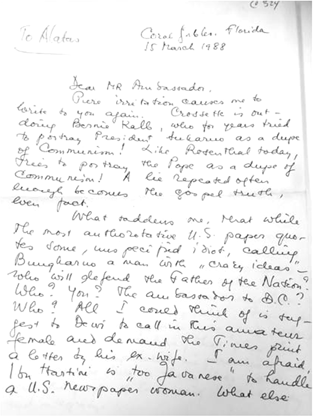 To Alatas
Coral Gables. Florida
15 March 1988
Dear MR Ambassador.
Pure irritation causes me to
write to you again. Crossette is out-
doing Bernie Kalb, who for years tried
to portray President Sukarno as a dupe
of Communism! Like Rosenthal today,
tries to portray the Pope as a dupe of
Communism! A lie repeated often
enough becomes the gospel truth,
even fact.
What saddens me, that while
the most authoratative U.S. paper quo-
tes some, unspecified idiot, calling
Bungkarno a man with "crazy ideas" -
who will defend the Father of the Nation?
Who? You? The ambassador to D.C.?
Who? All I could think of is sug-
gest to Dewi to call in this amateur
female and demand the Times print
a letter by his ex. wife. I am afraid,
Ibu Hartini is "too Javanese" to handle
a U.S. newspaper woman. What else